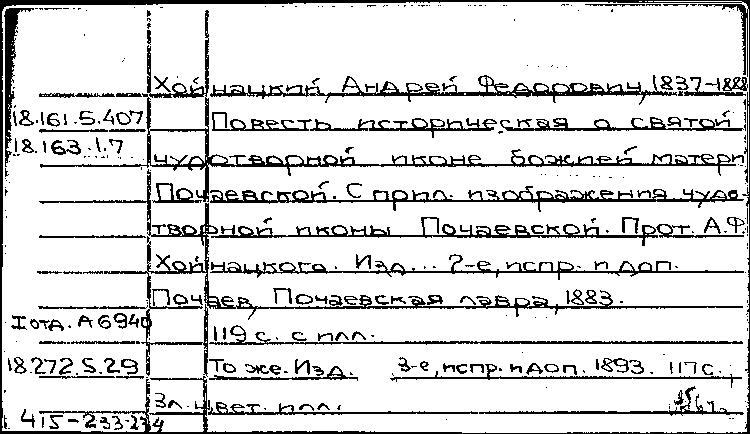 Хойнацкий, Андрей Федорович, 1837-1888
18.161.5.407 Повесть историческая о святой
18.163.1.7 чудотворной иконе божией матери
Почаевской. С прил. изображения чудо-
творной иконы Почаевской. Прот. А.Ф.
Хойнацкого. Изд... 2-е, испр. и доп.
Почаев, Почаевская лавра, 1883.
I отд. А 6940 119 с. с илл.
18.272.5.29 То же. Изд. 3-е, испр. и доп. 1893. 117 с.,
3 л. цвет. илл.
415-233-234